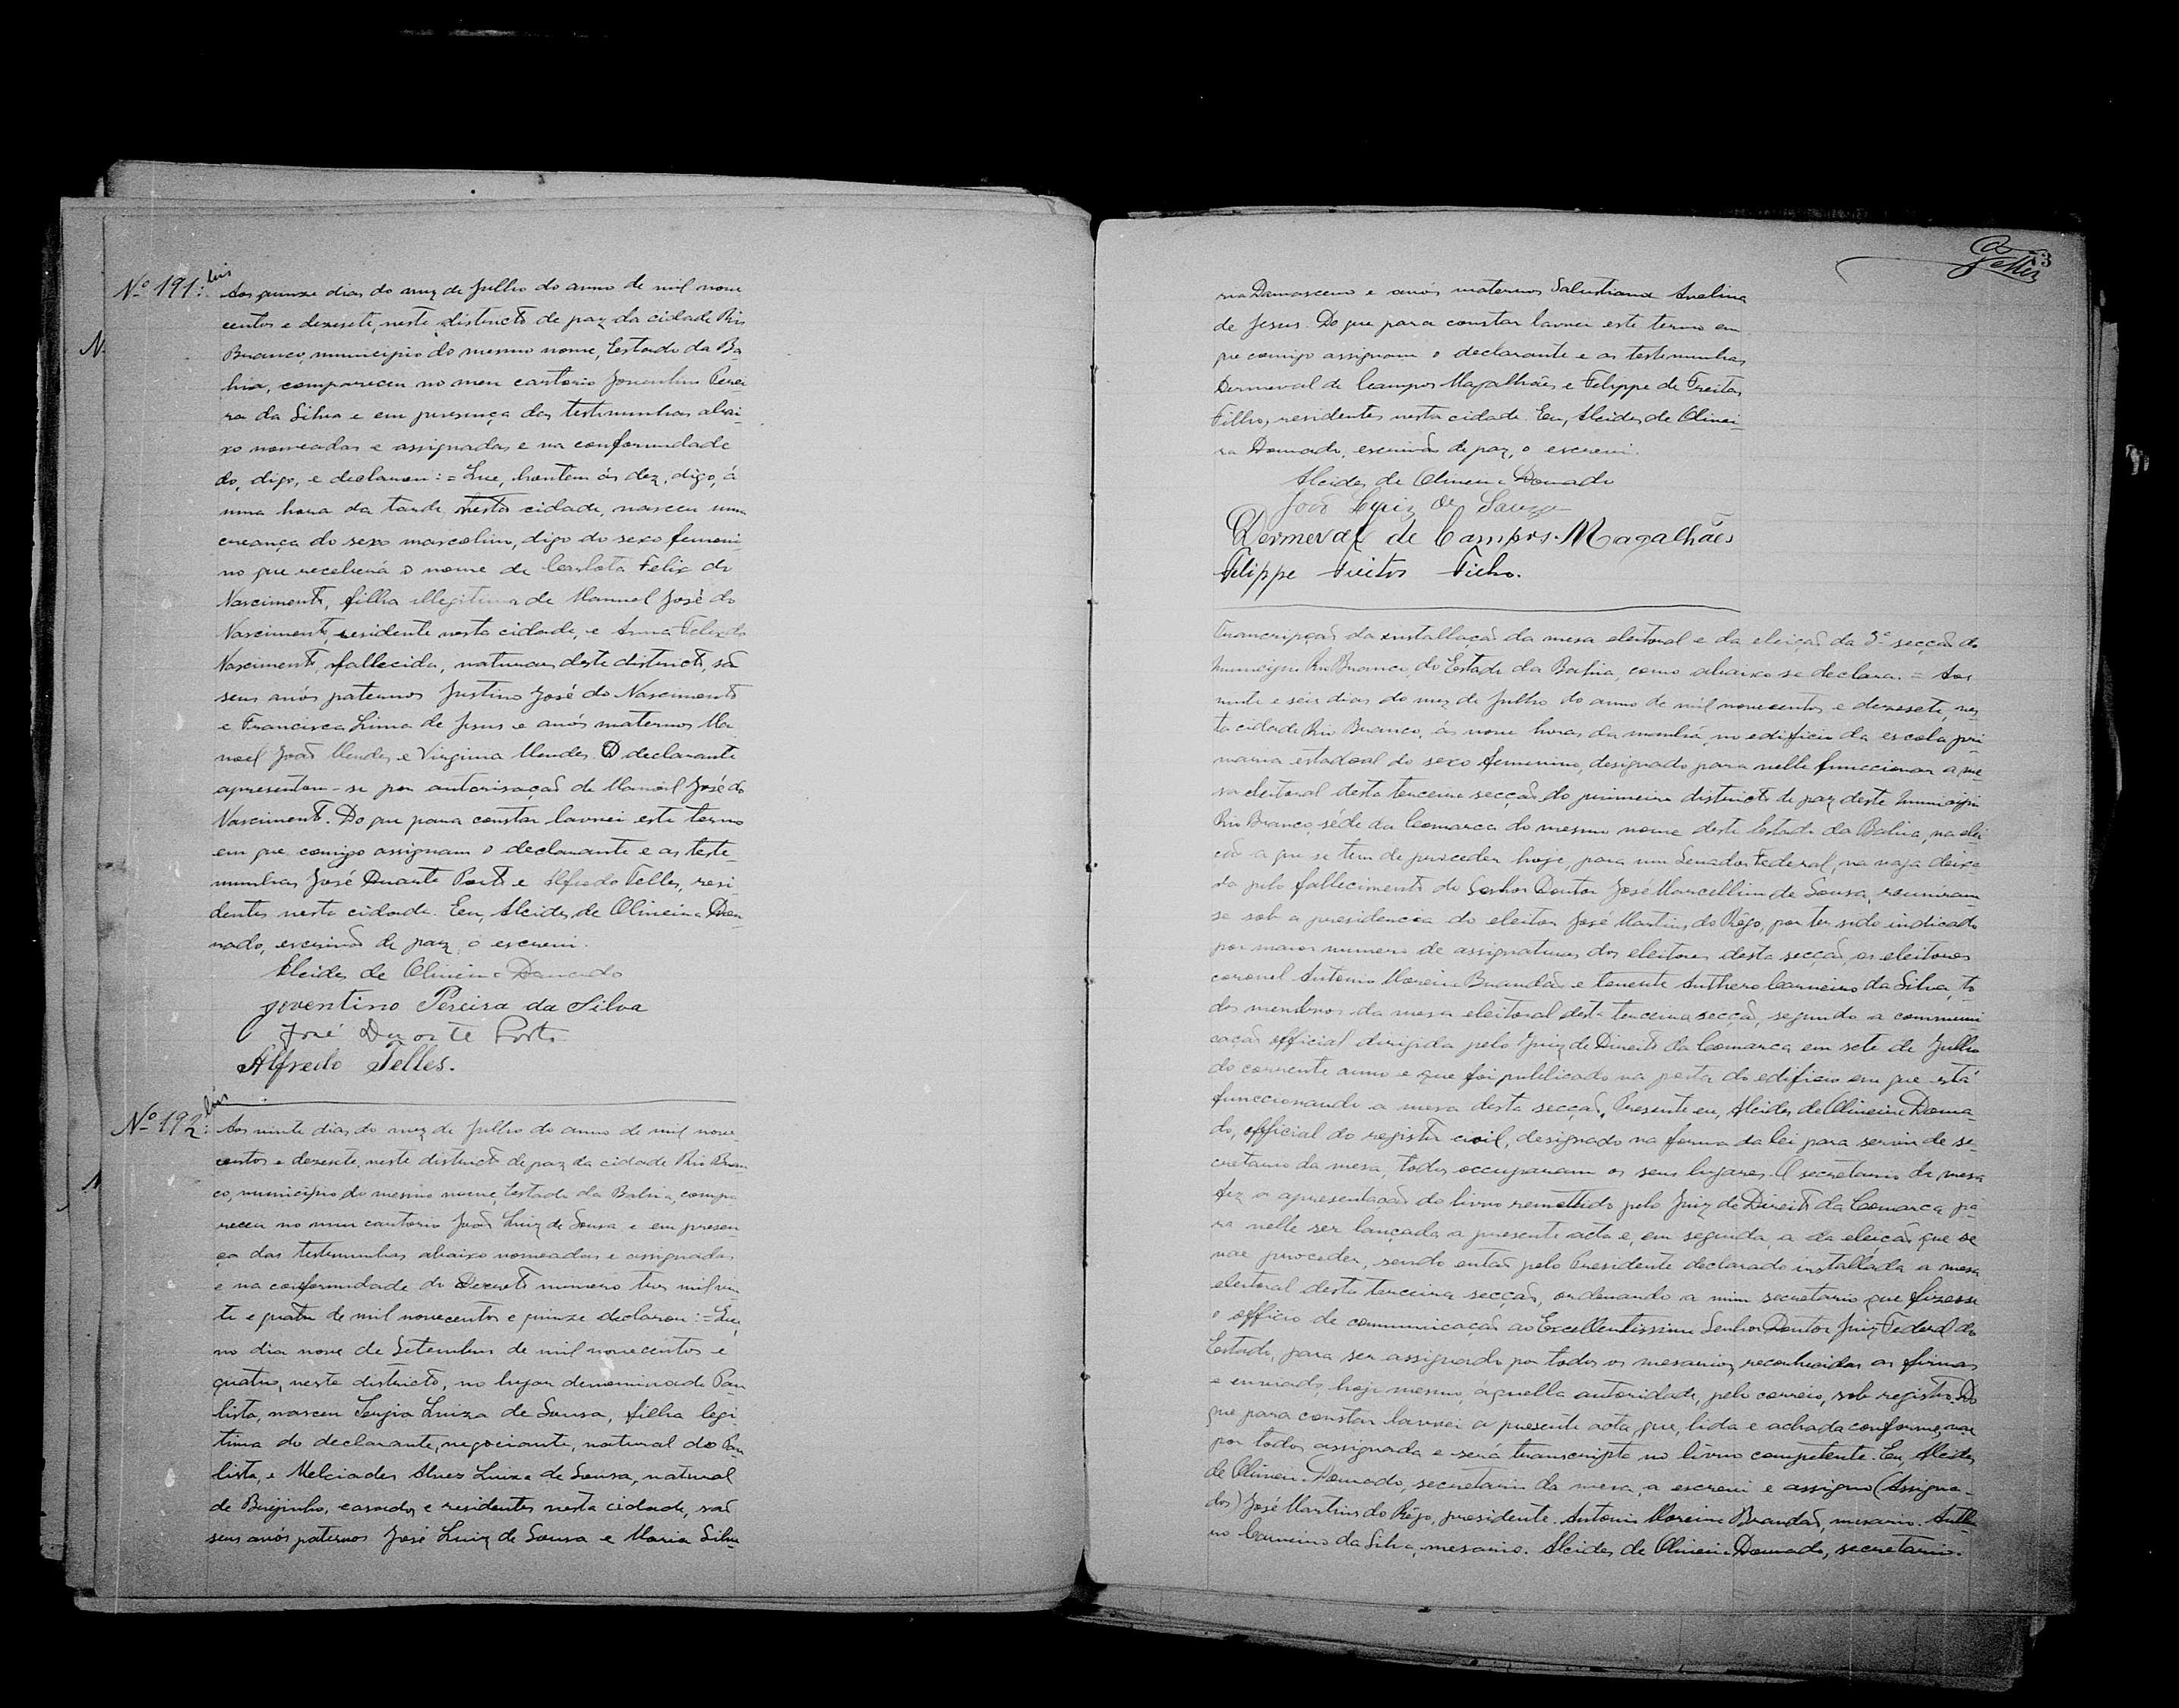 Nº 191: Aos quinze dias do mez de Julho do anno de mil nove
centos e dezesete, neste districto de paz da cidade Rio
Branco, municipio do mesmo nome, Estado da Ba-
hia, compareceu no meu cartorio Joventino Perei-
ra da Silva e em presença das testimunhas abai-
xo nomeadas e assignadas e na conformidade
do, digo, e declarou: = Que, hontem ás dez, digo, á
uma hora da tarde, nesta cidade, nasceu uma
creança do sexo mascolino, digo do sexo femeni-
no que receberá o nome de Carlota Felix do
Nascimento, filha illegitima de Manuel José do
Nascimento, residente nesta cidade, e Anna Felix do
Nascimento, fallecida, naturaes deste districto, são
seus avós paternos Justino José do Nascimento
e Francisca Lima de Jesus e avós maternos Ma-
noel João Mendes e Virginia Mendes. O declarante
apresentou-se por autorisação de Manoel José do
Nascimento. Do que para constar lavrei este termo
em que comigo assignam o declarante e as teste-
munhas José Duarte Porto e Alfredo Telles, resi-
dentes nesta cidade. Eu, Alcides de Oliveira Dou-
rado, escrivão de paz, o escrevi.
Alcides de Oliveira Dourado
Joventino Pereira da Silva
José Duarte Porto
Alfredo Telles.
Nº 192: Aos vinte dias do mez de Julho do anno de mil nove-
centos e dezesete, neste districto de paz da cidade Rio Bran-
co, municipio do mesmo nome, Estado da Bahia, compa-
receu no meu cartorio João Luiz de Sousa e em presen-
ça das testemunhas abaixo nomeadas e assignadas
e na conformidade do Decreto numero tres mil vin-
te e quatro de mil novecentos e quinze declarou: = Que,
no dia nove de Setembro de mil novecentos e
quatro, neste districto, no lugar denominado Pau-
lista, nasceu Sergia Luiza de Sousa, filha legi-
tima do declarante, negociante, natural do Pau-
lista, e Melciades Alves Luiza de Sousa, natural
de Brejinho, casados e residentes nesta cidade, são
seus avós paternos José Luiz de Sousa e Maria Silve-
73
ria Damasceno e avós maternos Salustiano Avelina
de Jesus. Do que para constar lavrei este termo em
que comigo assignam o declarante e as testimunhas
Dermeval de Campos Magalhães e Felippe de Freitas
Filho, residentes nesta cidade. Eu, Alcides de Olivei-
ra Dourado, escrivão de paz, o escrevi.
Alcides de Oliveira Dourado
João Luiz de Souza
Dermeval de Campos Magalhães
Felippe Freitas Filho.
Transcripção da installação da mesa eleitoral e da eleição da 3ª secção do
Municipio Rio Branco, do Estado da Bahia, como abaixo se declara. = Aos
vinte e seis dias do mez de Julho do anno de mil novecentos e dezesete, nes-
ta cidade Rio Branco, ás nove horas da manhã, no edificio da escola pri-
maria estadoal do sexo femenino, designado para nelle funccionar a me-
sa eleitoral desta terceira secção do primeiro districto de paz deste Municipio
Rio Branco, séde da Comarca do mesmo nome deste Estado da Bahia, na elei-
ção a que se tem de proceder hoje, para um Senador Federal, na vaga deixa-
da pelo fallecimento do Senhor Doutor José Marcellino de Sousa, reuniram-
se sob a presidencia do eleitor José Martins do Rêgo, por ter sido indicado
por maior numero de assignaturas dos eleitores desta secção, os eleitores
coronel Antonio Moreira Brandão e tenente Anthero Carneiro da Silva, to-
dos membros da mesa eleitoral desta terceira secção, segundo a communi-
cação official dirigida pelo Juiz de Direito da Comarca em sete de Julho
do corrente anno e que foi publicado na porta do edificio em que está
funccionando a mesa desta secção. Presente eu, Alcides de Oliveira Doura-
do, official do registro civil, designado na forma da lei para servir de se-
cretario da mesa, todos occuparam os seus lugares. O secretario da mesa
fez a apresentação do livro remettido pelo Juiz de Direito da Comarca pa-
ra nelle ser lançada a presente acta e, em seguida, a da eleição que se
vae proceder, sendo então pelo Presidente declarado installada a mesa
eleitoral desta terceira secção, ordenando a mim secretario que fizesse
o officio de communicação ao Excellentissimo Senhor Doutor Juiz Federal do
Estado, para ser assignado por todos os mesarios, reconhecidas as firmas
e enviado, hoje mesmo, áquella autoridade, pelo correio, sob registro. Do
que para constar lavrei a presente acta, que, lida e achada conforme, vae
por todos assignada e será transcripta no livro competente. Eu, Alcides
de Oliveira Dourado, secretario da mesa, a escrevi e assigno (Assigna-
dos) José Martins do Rêgo, presidente. Antonio Moreira Brandão, mesario. Anthe-
ro Carneiro da Silva, mesario. Alcides de Oliveira Dourado, secretario.